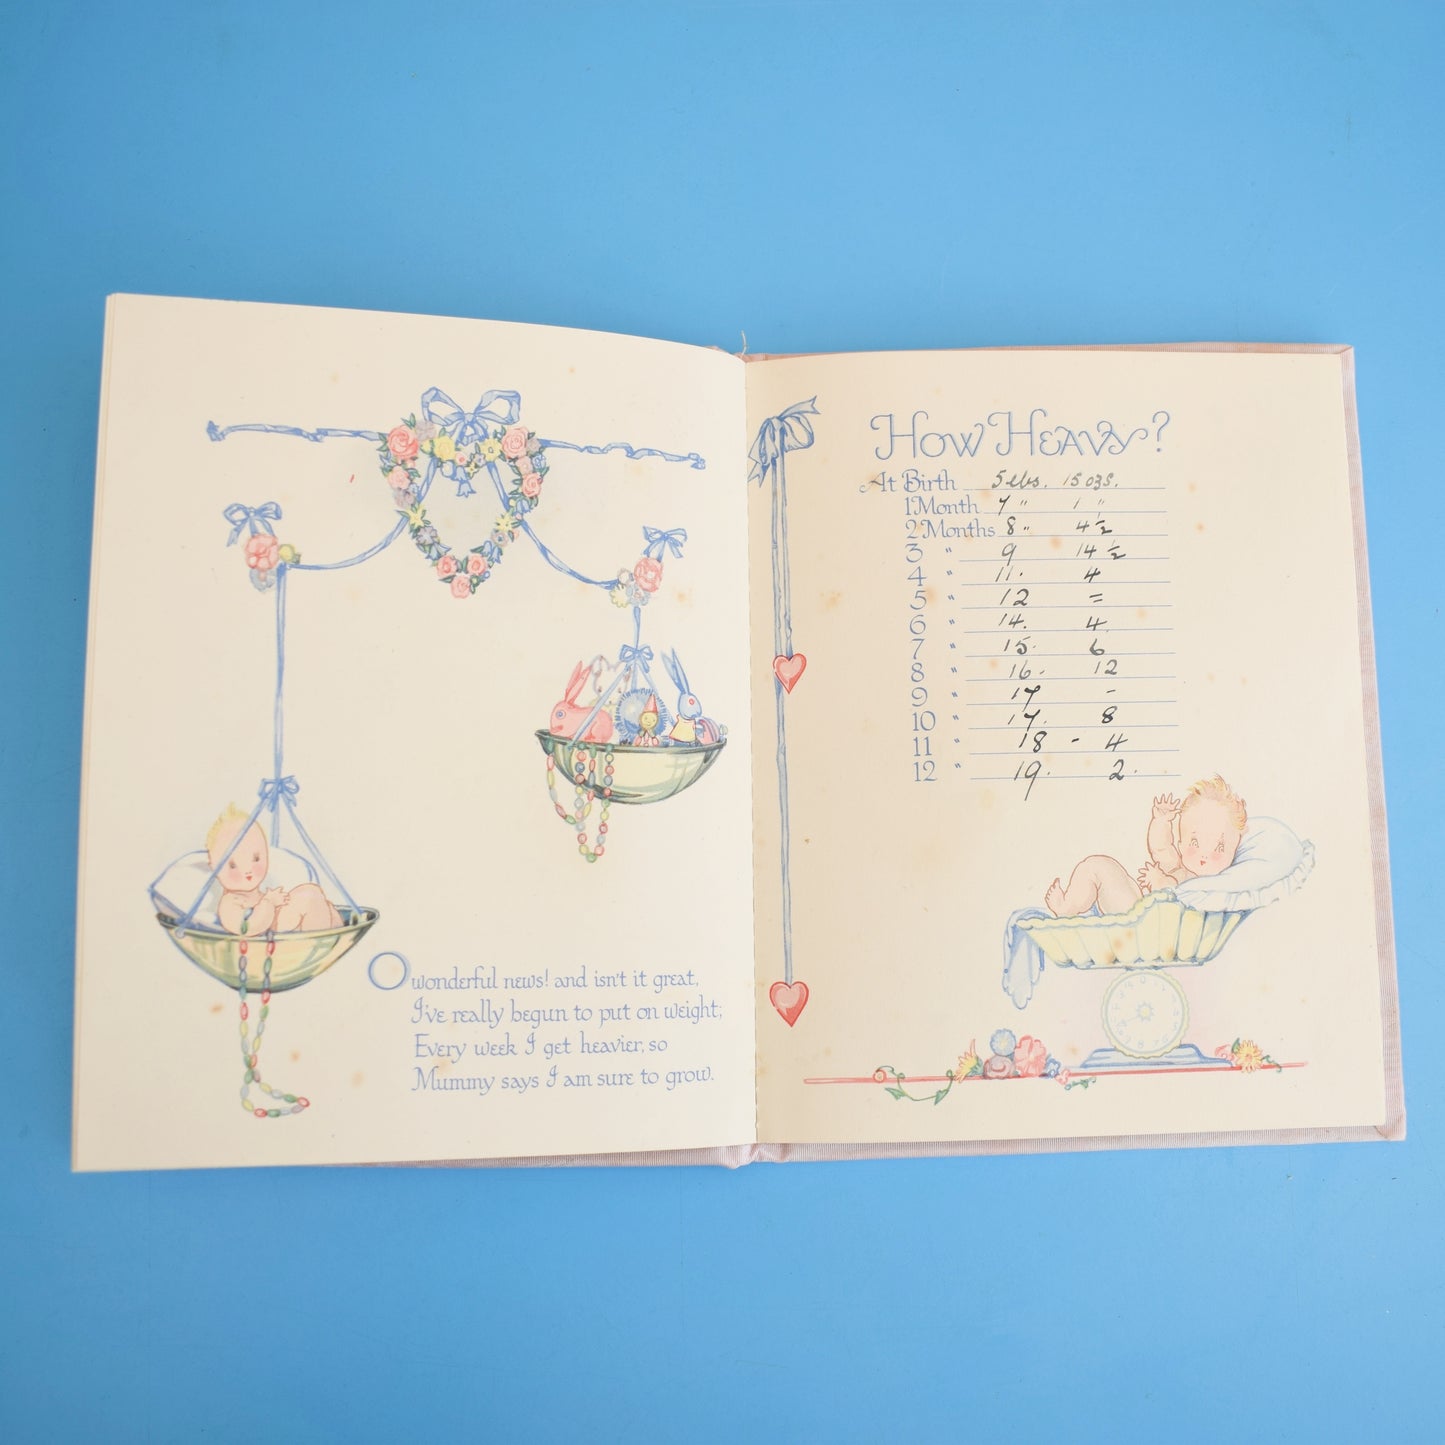 O wonderful news! and isn't it great,
I've really begun to put on weight;
Every week I get heavier, so
Mummy says I am sure to grow.
How Heavy?
At Birth 5 lbs. 15 ozs.
1 Month 7 " 1 "
2 Months 8 " 4 ½
3 " 9 14 ½
4 " 11. 4
5 " 12 =
6 " 14. 4
7 " 15. 6
8 " 16. 12
9 " 17 -
10 " 17. 8
11 " 18 - 4
12 " 19. 2.